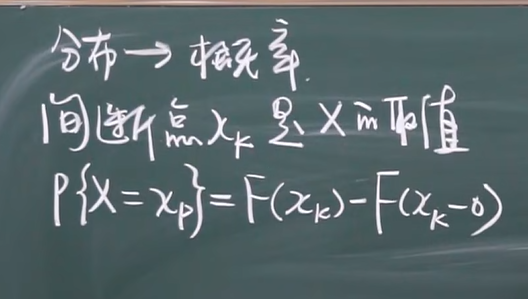 分布→概率.
间断点x_k是X的取值
P{X=x_p}=F(x_k)-F(x_k-0)